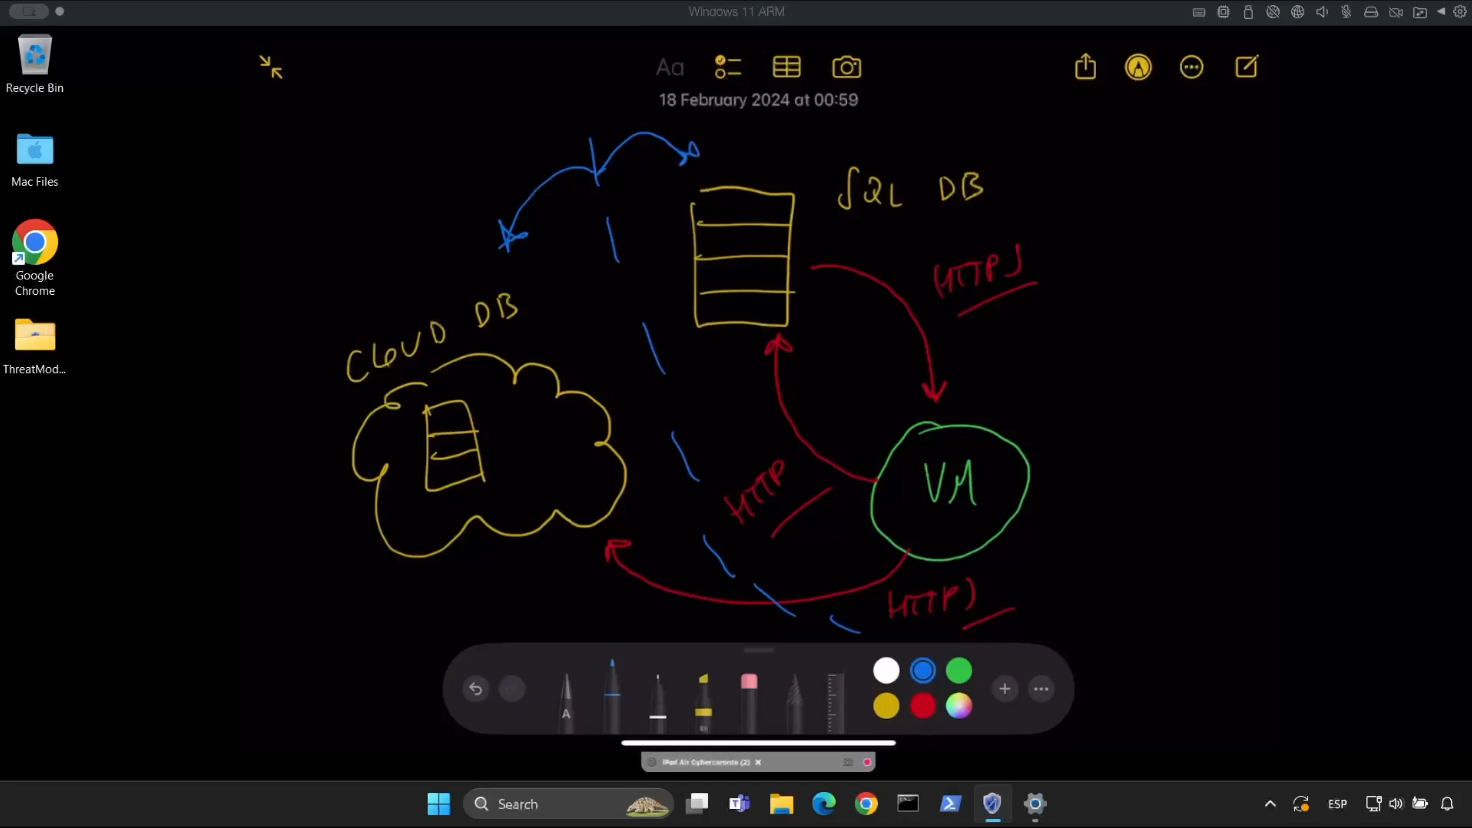 Windows 11 ARM
Recycle Bin
Mac Files
Google
Chrome
ThreatMod...
Aa
18 February 2024 at 00:59
SQL DB
HTTPS
CLOUD DB
VM
HTTP
HTTPS
A
iPad Air Cybercaronte (2)
Search
ESP